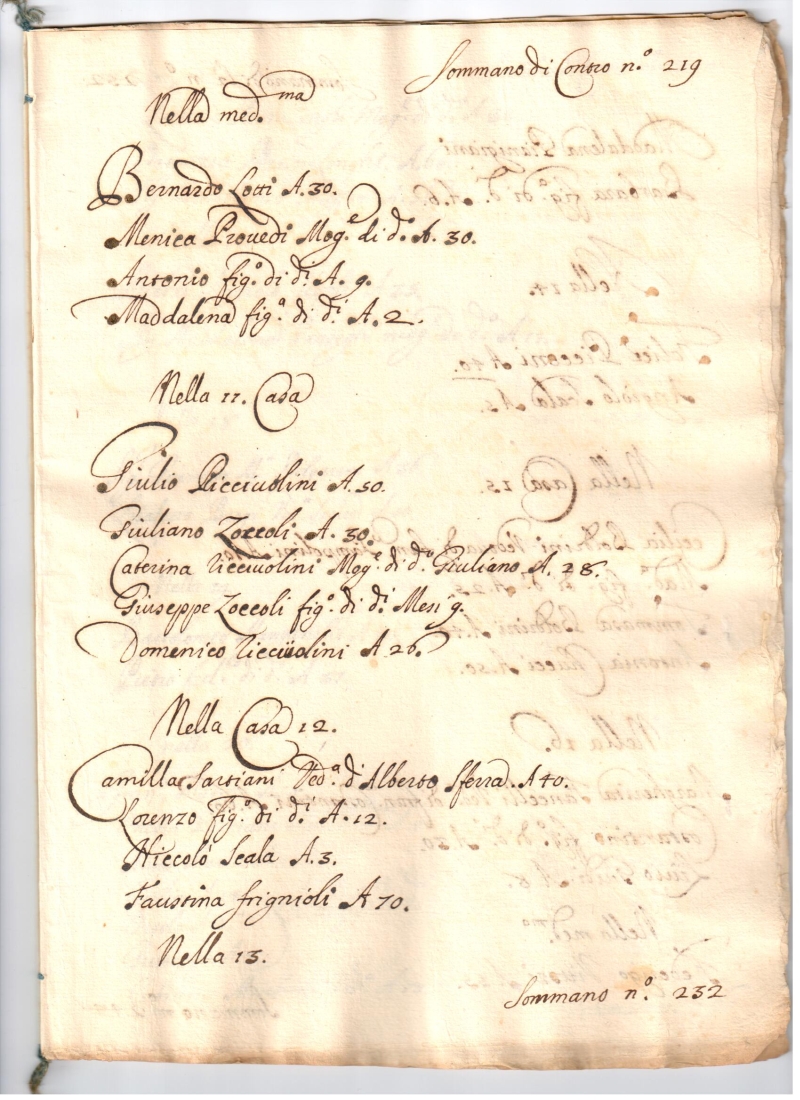 Sommano di Contro n.º 219
Nella med.ma
Bernardo Lotti A. 30.
Menica Provedi Mog.e di d.º A. 30.
Antonio fig.º di d.i A. 9.
Maddalena fig.a di d.i A. 2.
Nella 11. Casa
Giulio Picciuolini A. 50.
Giuliano Zoccoli A. 30.
Caterina Picciuolini Mog.e di d.º Giuliano A. 28.
Giuseppe Zoccoli fig.º di d.i Mesi 9.
Domenico Picciuolini A 26.
Nella Casa 12.
Camilla Sartiani Ved.a d'Alberto Sferra. A 40.
Lorenzo fig.º di d.i A. 12.
Niccolò Scala A. 3.
Faustina frignioli A 70.
Nella 13.
Sommano n.º 232